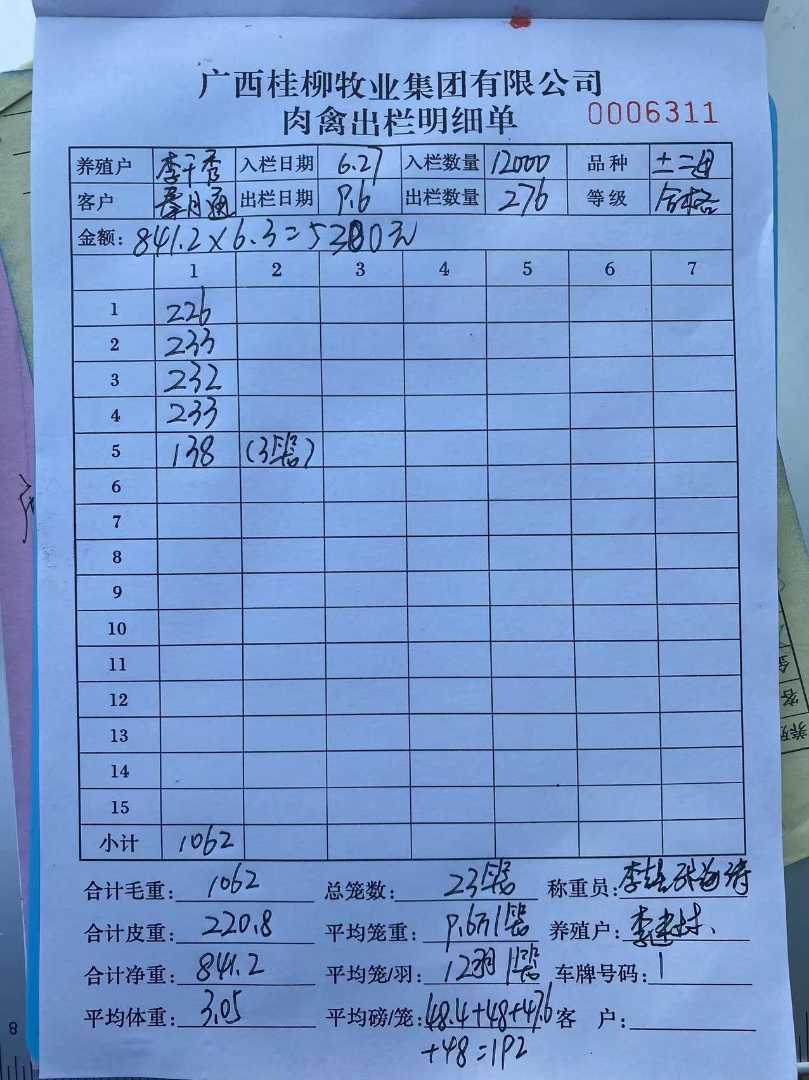 广西桂柳牧业集团有限公司
肉禽出栏明细单 0006311
养殖户 李千秀 入栏日期 6.27 入栏数量 12000 品种 土二
客户 月通 出栏日期 9.6 出栏数量 276 等级 合格
金额: 841.2×6.3=5300元
1 2 3 4 5 6 7
1 226
2 233
3 232
4 233
5 138 (3笼)
6
7
8
9
10
11
12
13
14
15
小计 1062
合计毛重: 1062 总笼数: 23笼 称重员: 李 张海涛
合计皮重: 220.8 平均笼重: 9.6斤/笼 养殖户: 李建林
合计净重: 841.2 平均笼/羽: 12羽/笼 车牌号码: 1
平均体重: 3.05 平均磅/笼: 48.4+48+47.6 客 户:
+48=192
8